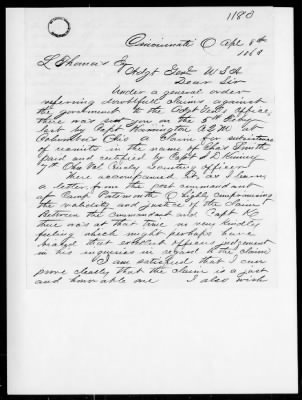 1180
Cincinnati O Apl. 8th
1863
L Thomas Esq
Adgt Genl U S A
Dear Sir
Under a general order
referring doubtful claims against
the government to the Adgt Genls office,
there was sent you on the 5th
last by Capt A Q M at
Columbus Ohio a claim for subsistence
of recruits in the name of Chas Smith
paid and certified by Capt J D Kinney
7th Ohio Vol Cavly Recruiting officer
There accompanied it, as I learn
a letter from the post commandant
at Camp highly compromising
the validity and justice of the claim
Between the commandant and Capt K
there was at that time no very kindly
feeling which might perhaps have
biased that officers judgement
in his inquiries in regard to the claim
I am satisfied that I can
prove clearly that the claim is a just
and honorable one I also wish